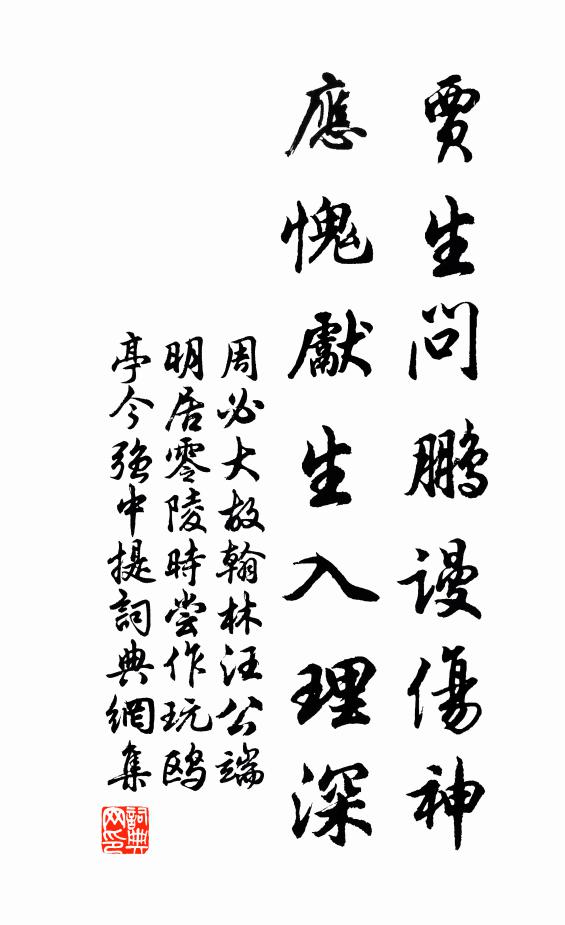 賈生問鵬謾傷神
應愧獻生入理深
周必大故翰林汪公端
明居零陵時嘗作玩鸥
亭今強中提詞典網集
詞典网印